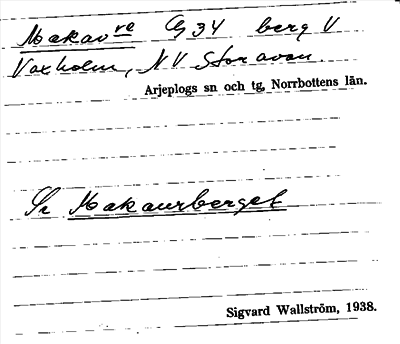 Makavre G 34 berg V
Vaxholm, NV Storavan.
Arjeplogs sn och tg, Norrbottens län.
Sv Makaurberget
Sigvard Wallström, 1938.